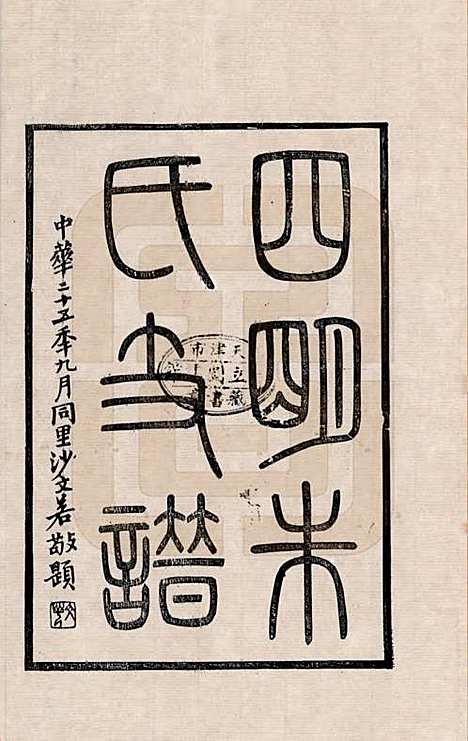 四明朱
氏支譜
中華二十五年九月同里沙文若敬題
天津市立圖書館藏書